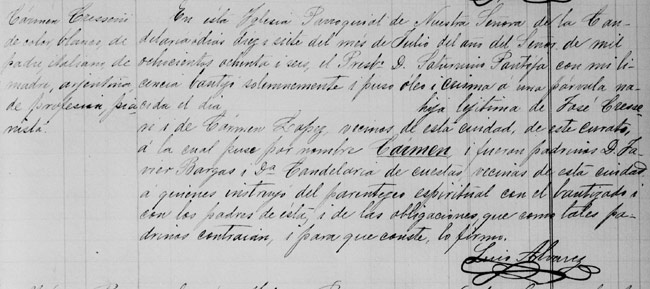 Cármen Cresseri
de color blanco, de
padre italiano, de
madre, argentina,
de profesion pia-
nista.
En esta Yglesia Parroquial de Nuestra Señora de la Can-
delaria a dias diez i siete del més de Julio del año del Señor de mil
ochocientos ochenta i seis, el Presbº D. Saturnino Pantoja con mi li-
cencia bautizó solemnemente i puso óleo i crisma a una párvula na-
cida el dia hija lejitima de José Cresse-
ri i de Cármen Lopez vecinos de esta ciudad, de este curato,
á la cual puse por nombre Cármen i fueron padrinos D. Ja-
vier Bargas i Dª Candelaria de Cuestas vecinas de esta ciudad
á quienes instruyó del parentezco espiritual con el bautizado i
con los padres de ésta, i de las obligaciones que como tales pa-
drinos contraian, i para que conste, lo firmo.
Luis Alvarez